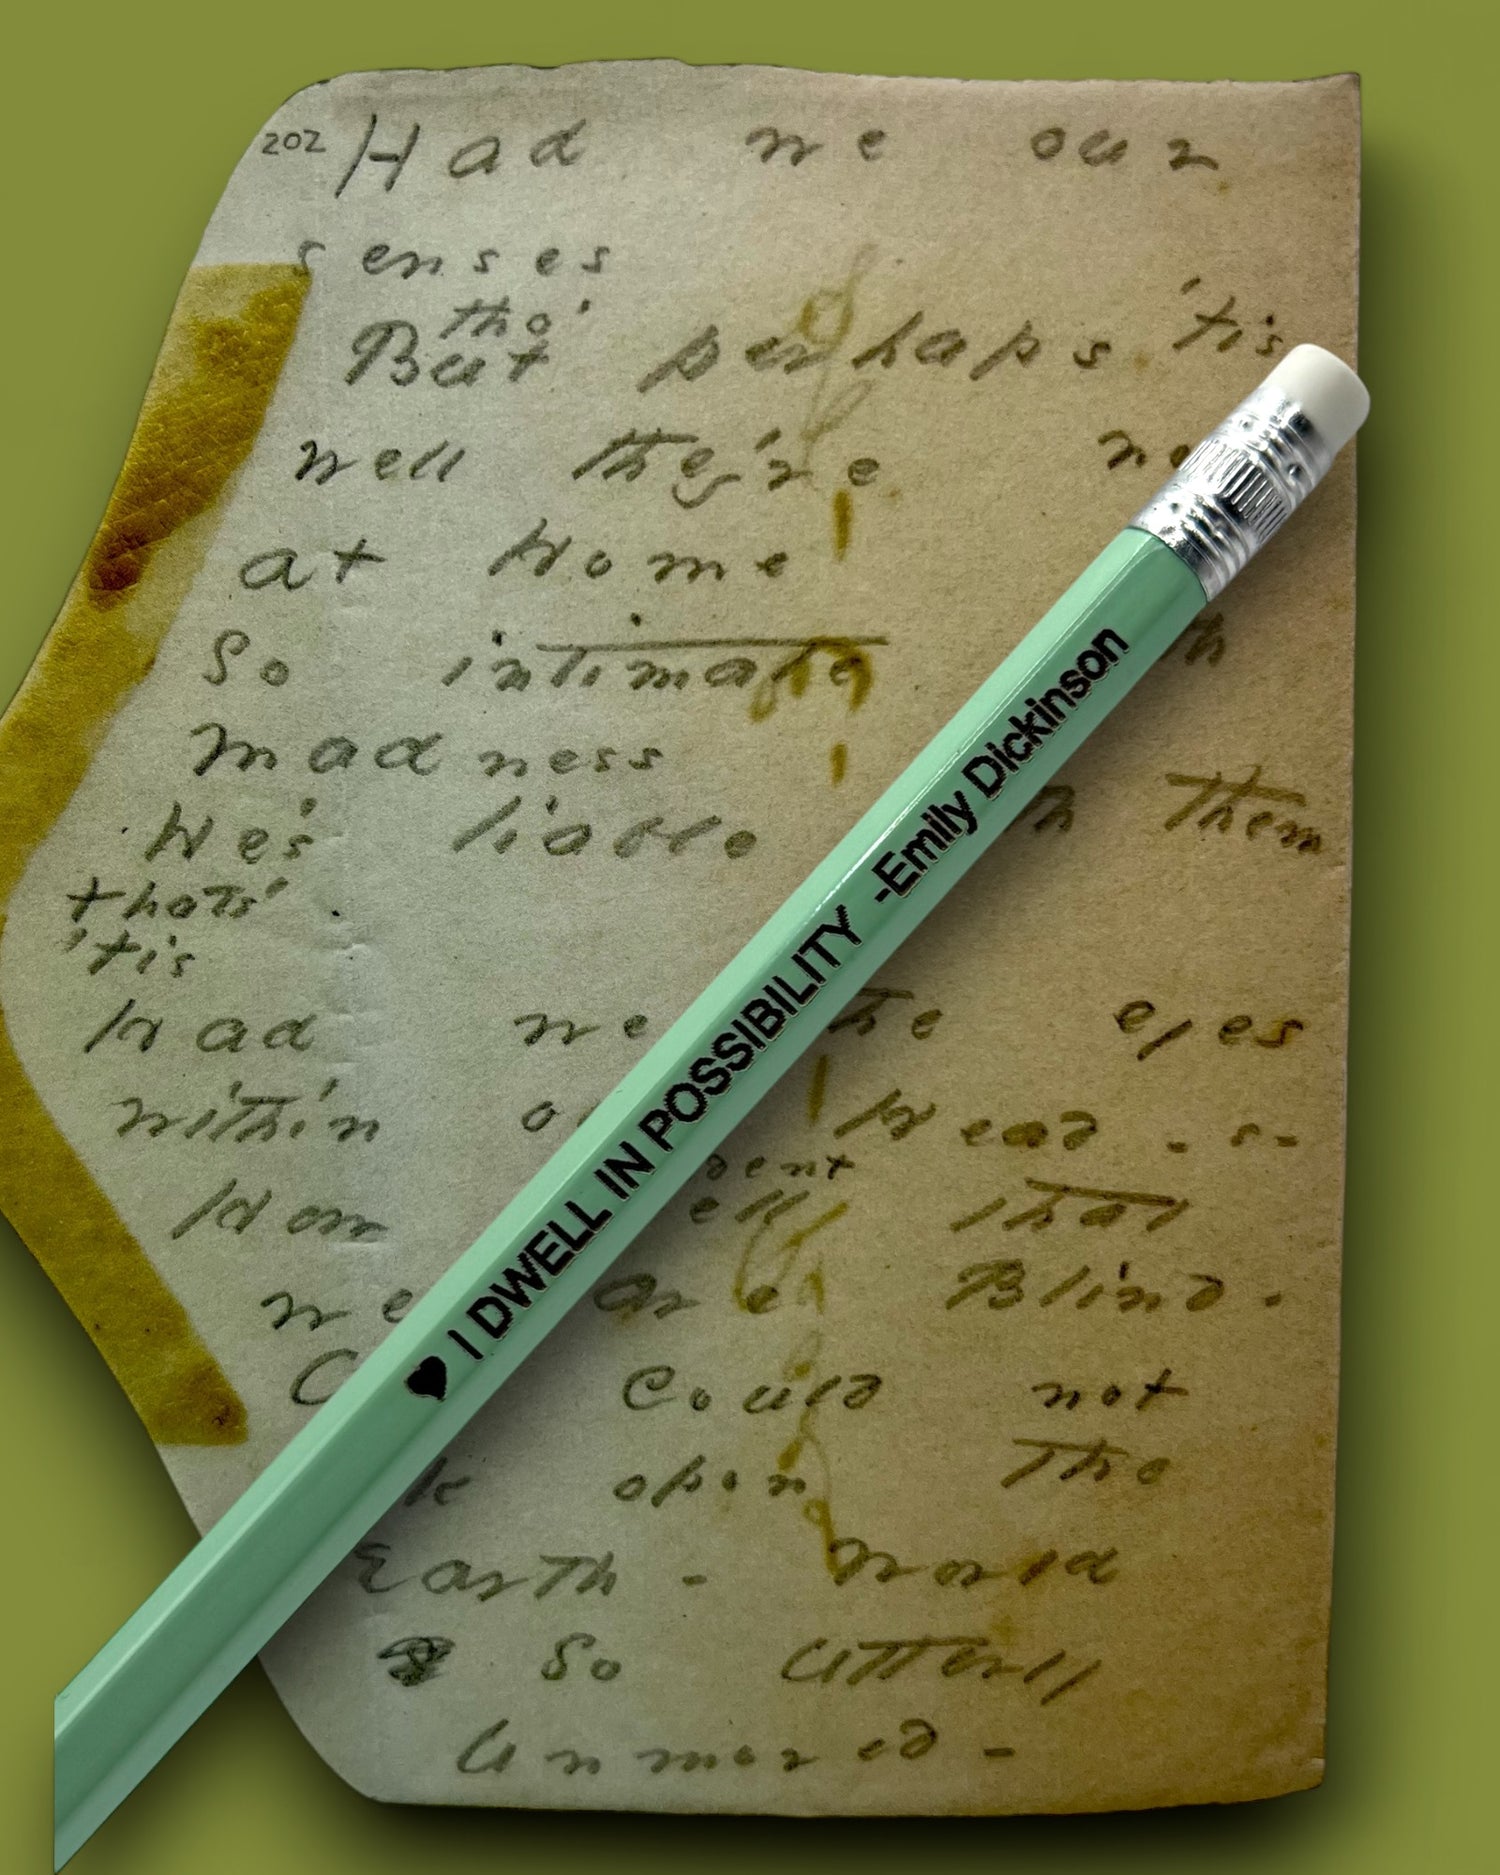 202 Had we our
senses
tho'
But perhaps 'tis
well they're
at Home
So intimate
madness
He's liable them
that's
'tis
Had we the eyes
within Head - s-
How that
we are Blind -
Could not
open the
Earth - World
So utterly
Unmoved -
♥ I DWELL IN POSSIBILITY -Emily Dickinson